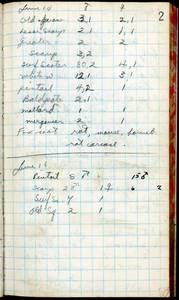 2
June 10 8 9
Old squaw 3,1 2,1
lesser scaup 3,1 2
greater 2 2
scaup 3,2
Surf Scoter 30,2 12,1
white w 12,1 3,1
pintail 4,2 1
Baldpate 2 1
mallard 1 1
merganser 2 1
Fox scat rat, mouse,
rat carcass.
June 11
Pintail 8 ♂ 15 ♂
Scaup 2 ♂ 1 ♀ 6 2
Surf Sc 7 1
Old Sq 2 1